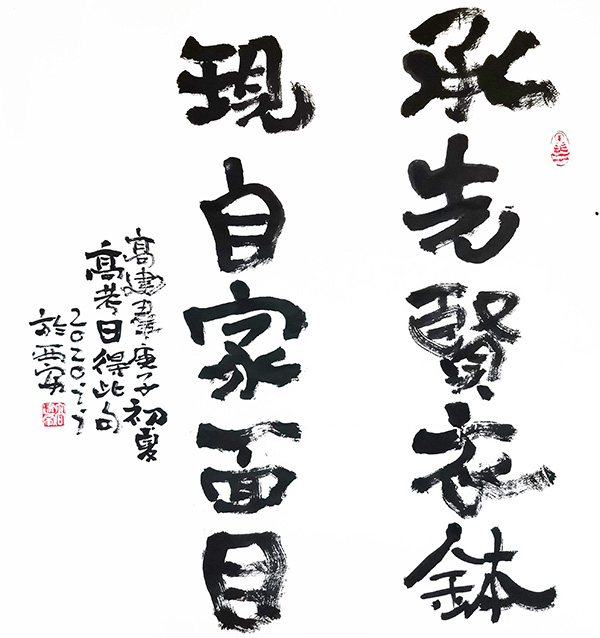 承先賢衣鉢
現自家面目
高建群庚子初夏
高考日得此句
2020.7.7
於西安